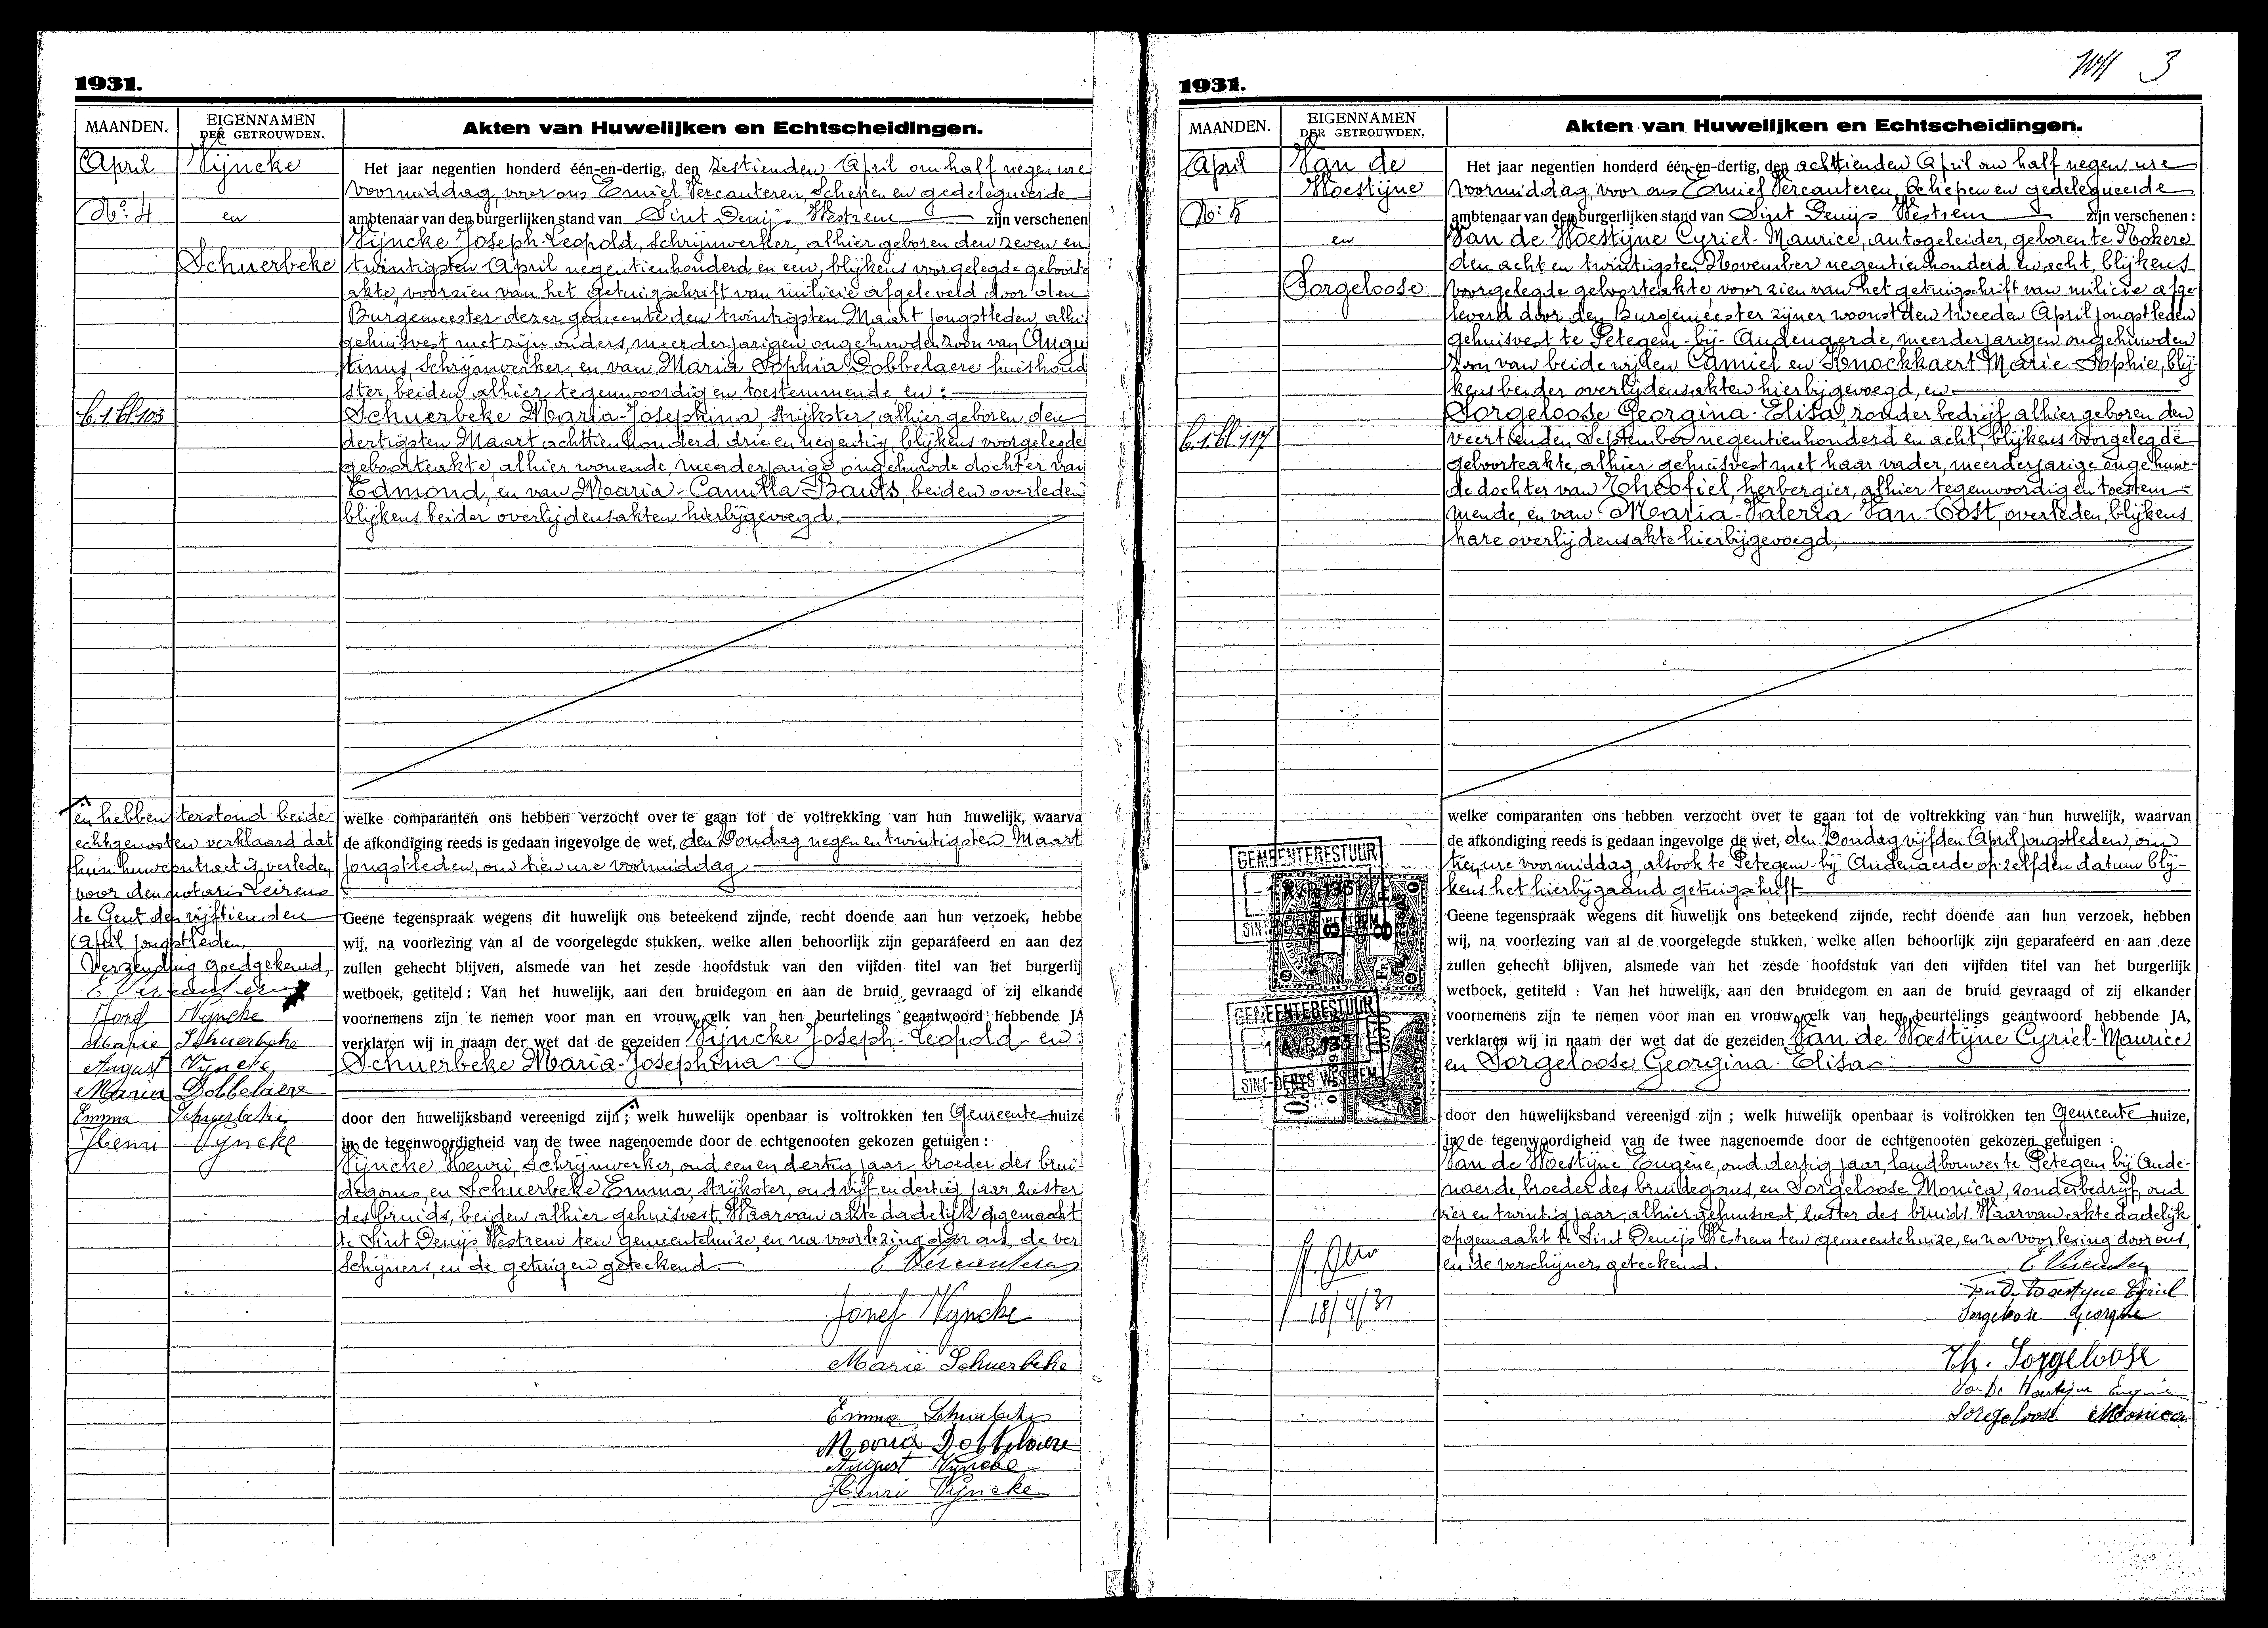 1931.
MAANDEN.
EIGENNAMEN
DER GETROUWDEN.
Akten van Huwelijken en Echtscheidingen.
April
No 4
Vijncke
en
Schuerbeke
b.1.bl.103
Het jaar negentien honderd één-en-dertig, den zestienden April om half negen ure
voormiddag, voor ons Emiel Vercauteren, Schepen en gedelegueerde
ambtenaar van den burgerlijken stand van Sint Denijs Westrem zijn verschenen
Vijncke Joseph-Leopold, Schrijnwerker, alhier geboren den zeven en
twintigsten April negentienhonderd en een, blijkens voorgelegde geboorte
akte, voorzien van het getuigschrift van milicie afgeleverd door den
Burgemeester dezer gemeente den twintigsten Maart jongstleden, alhi
gehuisvest met zijn ouders, meerderjarigen ongehuwden zoon van Augu
tinus, Schrijnwerker, en van Maria Sophia Dobbelaere huishoud
ster, beiden alhier tegenwoordig en toestemmende en:
Schuerbeke Maria-Josephina, strijkster, alhier geboren den
dertigsten Maart achttienhonderd drie en negentig, blijkens voorgelegde
geboorteakte, alhier wonende, meerderjarige ongehuwde dochter van
Edmond, en van Maria-Camilla Bauts, beiden overleden
blijkens beider overlijdensakten hierbijgevoegd.
welke comparanten ons hebben verzocht over te gaan tot de voltrekking van hun huwelijk, waarva
de afkondiging reeds is gedaan ingevolge de wet, den Zondag negen en twintigsten Maart
jongstleden, om tien ure voormiddag
Geene tegenspraak wegens dit huwelijk ons beteekend zijnde, recht doende aan hun verzoek, hebbe
wij, na voorlezing van al de voorgelegde stukken, welke allen behoorlijk zijn geparafeerd en aan dez
zullen gehecht blijven, alsmede van het zesde hoofdstuk van den vijfden titel van het burgerlij
wetboek, getiteld : Van het huwelijk, aan den bruidegom en aan de bruid gevraagd of zij elkande
voornemens zijn te nemen voor man en vrouw, elk van hen beurtelings geantwoord hebbende JA
verklaren wij in naam der wet dat de gezeiden Vijncke Joseph-Leopold en
Schuerbeke Maria-Josephina
door den huwelijksband vereenigd zijn ; welk huwelijk openbaar is voltrokken ten Gemeente huize
in de tegenwoordigheid van de twee nagenoemde door de echtgenooten gekozen getuigen :
Vijncke Henri, Schrijnwerker, oud een en dertig jaar, broeder des brui-
degoms, en Schuerbeke Emma, strijkster, oud vijf en dertig jaar, zuster
des bruids, beiden alhier gehuisvest. Waarvan akte dadelijk opgemaakt
te Sint Denijs Westrem ten gemeentehuize, en na voorlezing door ons, de ver
schijners, en de getuigen geteekend.
E Vercauteren
Jozef Vyncke
Marie Schuerbeke
Emma Schuerbeke
Maria Dobbelaere
August Vyncke
Henri Vyncke
en hebben terstond beide
echtgenooten verklaard dat
hun huwcontract is verleden
voor den notaris Leirens
te Gent den vijftienden
April jongstleden.
Verzending goedgekeurd,
E Vercauteren
Jozef Vyncke
Marie Schuerbeke
August Vyncke
Maria Dobbelaere
Emma Schuerbeke
Henri Vyncke
3
1931.
MAANDEN.
EIGENNAMEN
DER GETROUWDEN.
Akten van Huwelijken en Echtscheidingen.
April
No 5
Van de
Woestijne
en
Sorgeloose
b.1.bl.117
Het jaar negentien honderd één-en-dertig, den achttienden April om half negen ure
voormiddag, voor ons Emiel Vercauteren, Schepen en gedelegueerde
ambtenaar van den burgerlijken stand van Sint Denijs Westrem zijn verschenen :
Van de Woestijne Cyriel-Maurice, autogeleider, geboren te Nokere
den acht en twintigsten November negentienhonderd en acht, blijkens
voorgelegde geboorteakte, voorzien van het getuigschrift van milicie afge-
leverd door den Burgemeester zijner woonst den tweeden April jongstleden
gehuisvest te Petegem-bij-Audenaerde, meerderjarigen ongehuwden
zoon van beide wijlen Camiel en Knockkaert Marie-Sophie, blij-
kens beider overlijdensakten hierbijgevoegd, en
Sorgeloose Georgina-Elisa, zonder bedrijf, alhier geboren den
veertienden September negentienhonderd en acht, blijkens voorgelegde
geboorteakte, alhier gehuisvest met haar vader, meerderjarige ongehuw-
de dochter van Theofiel, herbergier, alhier tegenwoordig en toestem-
mende, en van Maria-Valeria Van Oost, overleden, blijkens
hare overlijdensakte hierbijgevoegd,
welke comparanten ons hebben verzocht over te gaan tot de voltrekking van hun huwelijk, waarvan
de afkondiging reeds is gedaan ingevolge de wet, den Zondag vijfden April jongstleden, om
tien ure voormiddag, alsook te Petegem-bij Audenaerde op zelfden datum blij-
kens het hierbijgaand getuigschrift
Geene tegenspraak wegens dit huwelijk ons beteekend zijnde, recht doende aan hun verzoek, hebben
wij, na voorlezing van al de voorgelegde stukken, welke allen behoorlijk zijn geparafeerd en aan deze
zullen gehecht blijven, alsmede van het zesde hoofdstuk van den vijfden titel van het burgerlijk
wetboek, getiteld : Van het huwelijk, aan den bruidegom en aan de bruid gevraagd of zij elkander
voornemens zijn te nemen voor man en vrouw, elk van hen beurtelings geantwoord hebbende JA,
verklaren wij in naam der wet dat de gezeiden Van de Woestijne Cyriel-Maurice
en Sorgeloose Georgina-Elisa
door den huwelijksband vereenigd zijn ; welk huwelijk openbaar is voltrokken ten Gemeente huize,
in de tegenwoordigheid van de twee nagenoemde door de echtgenooten gekozen getuigen :
Van de Woestijne Eugène, oud dertig jaar, landbouwer te Petegem bij Aude-
naerde, broeder des bruidegoms, en Sorgeloose Monica, zonder bedrijf, oud
vier en twintig jaar, alhier gehuisvest, zuster des bruids. Waarvan akte dadelijk
opgemaakt te Sint Denijs Westrem ten gemeentehuize, en na voorlezing door ons,
en de verschijners geteekend.
Van De Woestyne Cyriel
Sorgeloose Georgine
Th. Sorgeloose
Van De Woestijne Eugène
Sorgeloose Monica
GEMEENTEBESTUUR
SINT-DENYS WESTREM
GEMEENTEBESTUUR
-1 AVR 1931
SINT-DENYS WESTREM
18/4/31